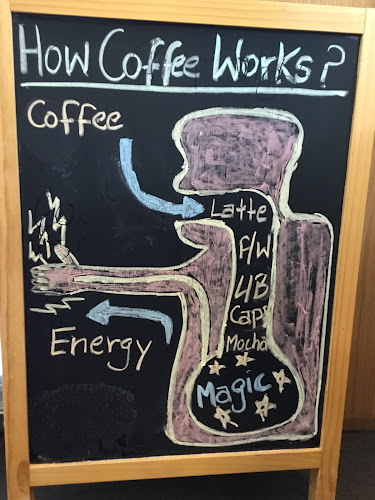 How Coffee Works?
Coffee
Latte
F/W
4B
Capp
Mocha
Energy
Magic